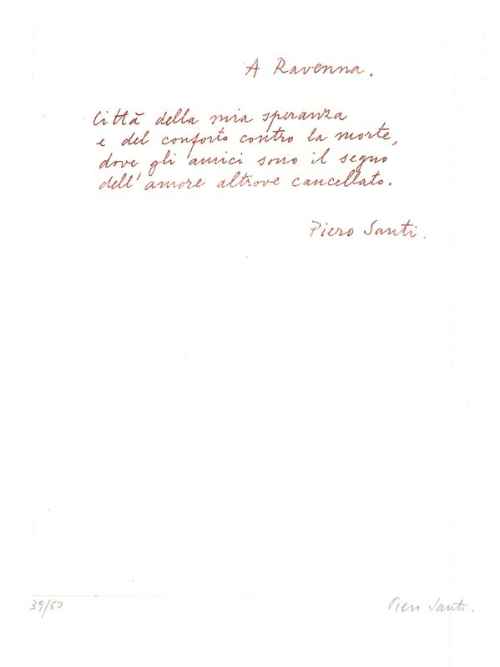 A Ravenna.
Città della mia speranza
e del conforto contro la morte,
dove gli amici sono il segno
dell'amore altrove cancellato.
Piero Santi.
39/50
Piero Santi.